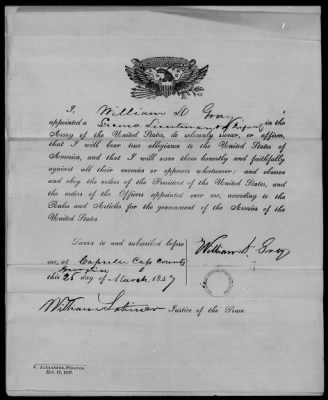 I, William D Gray
appointed a Second Lieutenant of Infantry in the
Army of the United States, do solemnly swear, or affirm,
that I will bear true allegiance to the United States of
America, and that I will serve them honestly and faithfully
against all their enemies or opposers whatsoever; and observe
and obey the orders of the President of the United States, and
the orders of the Officers appointed over me, according to the
Rules and Articles for the government of the Armies of the
United States.
Sworn to and subscribed before
William D. Gray
me, at Cass County
this 26 day of March 1847
William Justice of the Peace.
C. Alexander, Printer,